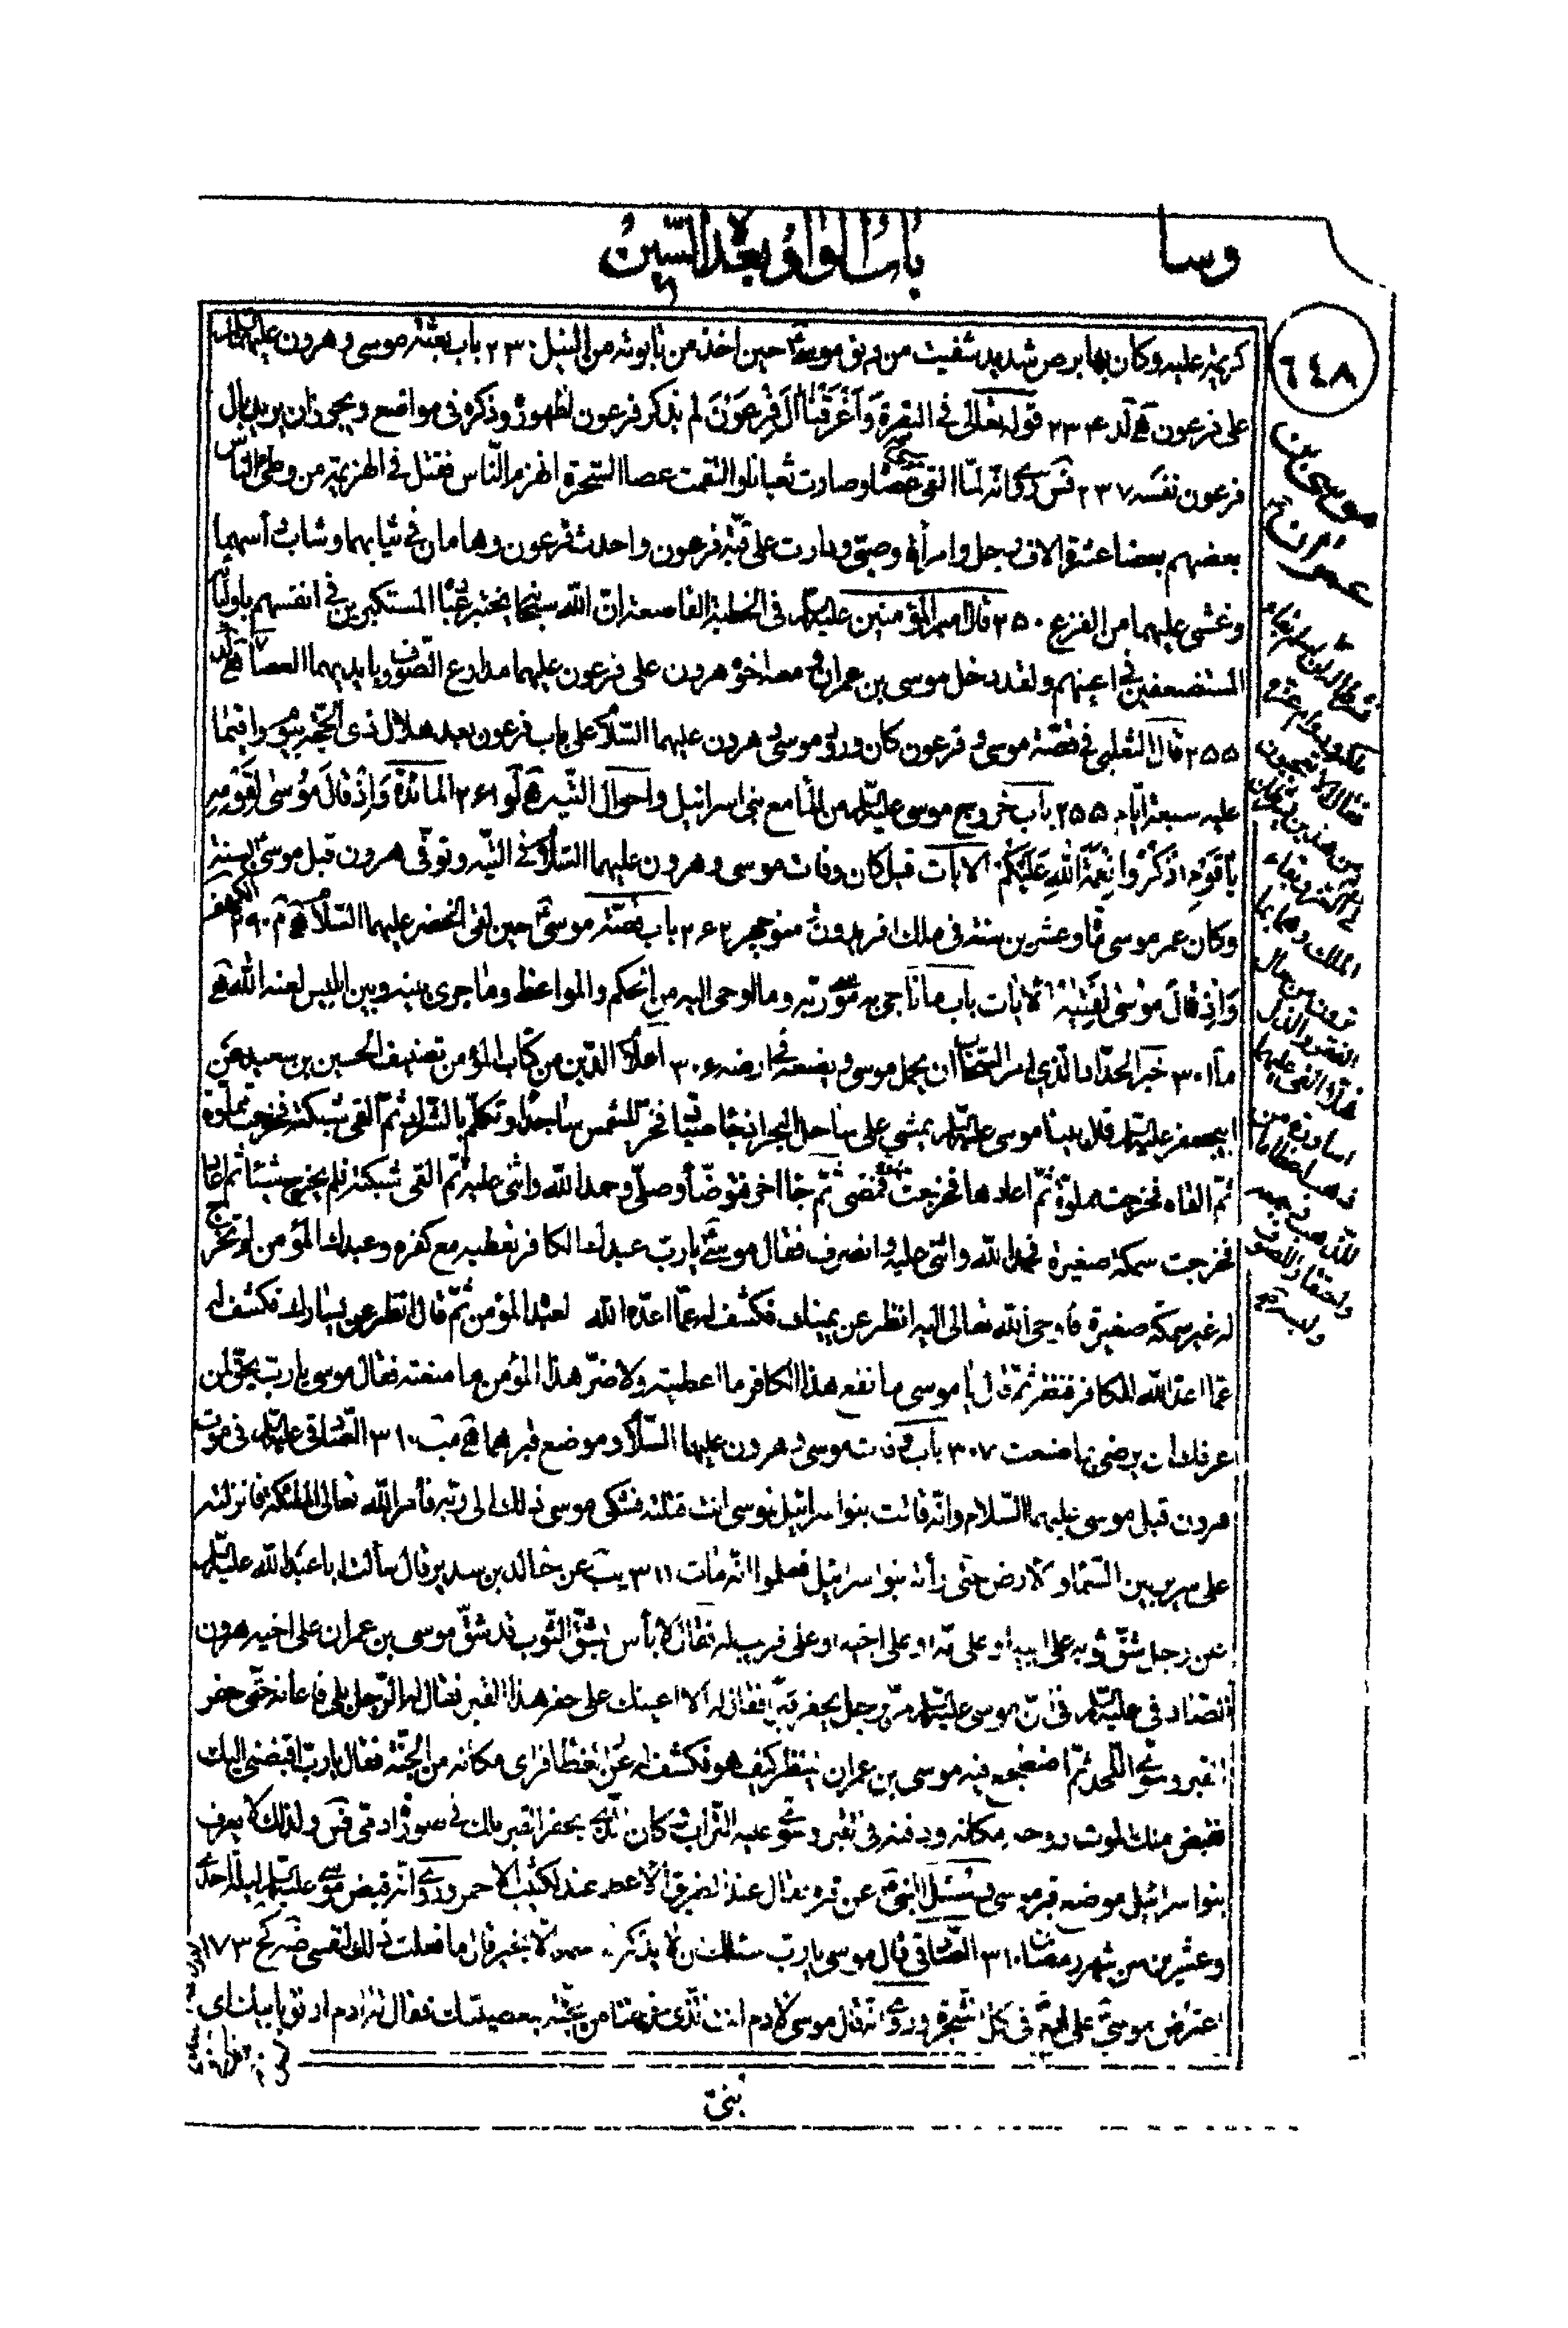 وسا
باب الواو بعد السين
٦٤٨
كريمة عليه وكان بها برص شديد شفيت من ريق موسى حين اخذ من تابوته من النيل ٢٣٠ باب بعثة موسى وهرون عليهما
على فرعون لد ٢٣٤ قوله تعالى في البقرة وَاَغْرَقْنٰا اٰلَ فِرْعَوْنَ لم يذكر فرعون لظهوره وذكره في مواضع ويجوز ان يريد بال
فرعون نفسه ٢٣٧ فس روى انه لمّا القى موسى عصاه وصارت ثعبانا والتقمت عصا السحرة انهزم النّاس فقتل في الهزيمة من وطى الناس
بعضهم بعضا عشرة الاف رجل وامرأة وصبيّ ودارت على قبّة فرعون واحدث فرعون وهامان في ثيابهما وشاب رأسهما
وغشى عليهما من الفزع ٢٥٠ قال امير المؤمنين عليه السلام في الخطبة القاصعة انّ الله سبحانه يختبر عباده المستكبرين في انفسهم باوليائه
المستضعفين في اعينهم ولقد دخل موسى بن عمران و معه اخوه هرون على فرعون عليهما مدارع الصّوف وبايديهما العصا لد
٢٥٥ قال الثعلبي في قصّة موسى و فرعون كان ورود موسى و هرون عليهما السّلام على باب فرعون بعيد هلال ذي الحجّة
عليه سبعة ايّام ٢٥٥ باب خروج موسى عليه السلام من الماء مع بني اسرائيل واحوال التّيه لو ٢٦١ المائدة وَاِذْ قٰالَ مُوسىٰ لِقَوْمِهِ
يٰا قَوْمِ اذْكُرُوا نِعْمَةَ اللهِ عَلَيْكُمْ الايات قيل كان وفات موسى وهرون عليهما السّلام في التيه وتوفّى هرون قبل موسى بسنة
وكان عمر موسى مأة وعشرين سنة في ملك افريدون و منوچهر ٢٦٢ باب قصّة موسى حين لقى الخضر عليهما السّلام م ٢٩٠ الكهف
وَاِذْ قٰالَ مُوسىٰ لِفَتٰيهُ الايات باب ما ناجى به موسى ربّه وما اوحى اليه من الحكم والمواعظ وما جرى بينه وبين ابليس لعنه الله
ما ٣٠١ خبر الحدّاد الّذي امر السّحاب ان يحمل موسى و يضعه في ارضه ٣٠٦ اعلام الدّين من كتاب المؤمن تصنيف الحسين بن سعيد عن
ابيجعفر عليه السلام قال بينا موسى عليه السلام يمشي على ساحل البحر اذ جاء صيّاد فخرّ للشمس ساجدا وتكلّم بالشّرك ثمّ القى شبكته فخرجت مملوّة
ثمّ القاها فخرجت مملوّة ثمّ اعادها فخرجت فمضى ثمّ جاء اخر فتوضّأ وصلّى وحمد الله واثنى عليه ثمّ القى شبكته فلم يخرج شيئا ثم اعاد
فخرجت سمكة صغيرة فحمد الله واثنى عليه وانصرف فقال موسى يا ربّ عبدك الكافر تعطيه مع كفره وعبدك المؤمن لم تخرج
له غير سمكة صغيرة فاوحى الله تعالى اليه انظر عن يمينك فكشف له عمّا اعدّه الله لعبده المؤمن ثمّ قال انظر عن يسارك فكشف له
عمّا اعدّ الله للكافر فنظر ثمّ قال يا موسى ما نفع هذا الكافر ما اعطيته ولا ضرّ هذا المؤمن ما منعته فقال موسى يا ربّ يحقّ لمن
عرفك ان يرضى بما صنعت ٣٠٧ باب وفات موسى و هرون عليهما السّلام وموضع قبرهما مب ٣١٠ الصّادق عليه السلام في موت
هرون قبل موسى عليهما السّلام وانّه قالت بنوا اسرائيل لموسى انت قتلته فشكى موسى ذلك الى ربّه فأمر الله تعالى الملئكة فانزلته
على سرير بين السّماء والارض حتّى رأته بنوا اسرائيل فعلموا انّه مات ٣١١ يب عن خالد بن سدير قال سألت ابا عبد الله عليه السلام
عن رجل شقّ ثوبه على ابيه او على امّه او على اخيه او على قريب له فقال لا بأس بشقّ الثّوب قد شقّ موسى بن عمران على اخيه هرون
الصّادق عليه السلام في انّ موسى عليه السلام مرّ برجل يحفر قبرا فقال له الا اعينك على حفر هذا القبر فقال له الرّجل بلى فاعانه حتّى حفر
القبر وسوّى اللّحد ثمّ اضطجع فيه موسى بن عمران لينظر كيف هو فكشف له عن الغطاء فراى مكانه من الجنّة فقال يا ربّ اقبضني اليك
فقبض ملك الموت روحه مكانه ودفنه في القبر وسوّى عليه التّراب وكان الّذي يحفر القبر ملك في صورة ادمي ولذلك لا يعرف
بنوا اسرائيل موضع قبر موسى و سئل النّبي عن قبره فقال عند الطّريق الاعظم عند الكثيب الاحمر وروى انّه قبض موسى عليه السلام ليلة احدى
وعشرين من شهر رمضان ٣١٠ الصّادق قال موسى يا ربّ اسئلك ان لا يذكرني احد الّا بخير قال ما فعلت ذلك لنفسي كح ١٧٣
اعتراض موسى على ادم في اكل الشّجرة وروى انّه قال موسى لادم انت الّذي اخرجتنا من الجنّة بمعصيتك فقال له ادم ارفق بابيك اي
بنيّ
موسى بن
عمران